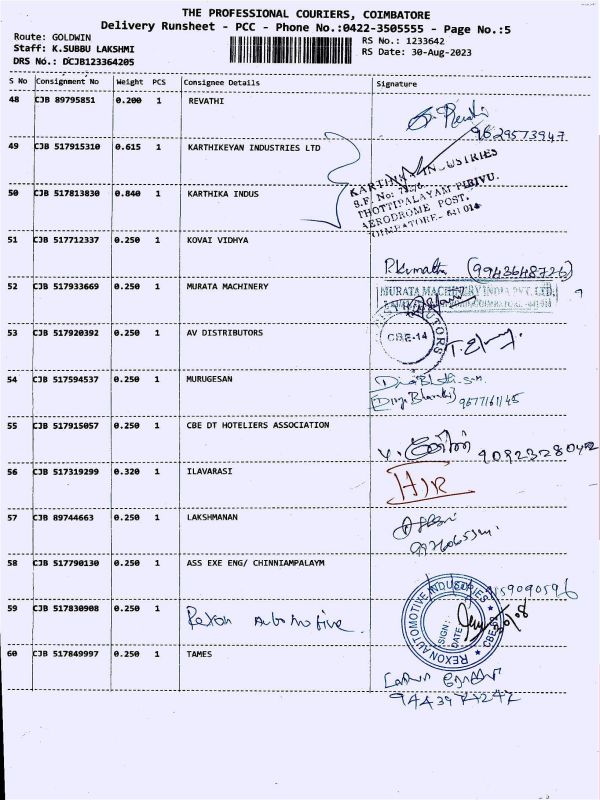 THE PROFESSIONAL COURIERS, COIMBATORE
Delivery Runsheet - PCC - Phone No.:0422-3505555 - Page No.:5
Route: GOLDWIN
Staff: K.SUBBU LAKSHMI
DRS No.: DCJB123364205
RS No.: 1233642
RS Date: 30-Aug-2023
S No Consignment No Weight PCS Consignee Details Signature
48 CJB 89795851 0.200 1 REVATHI
9629573947
49 CJB 517915310 0.615 1 KARTHIKEYAN INDUSTRIES LTD
50 CJB 517813830 0.840 1 KARTHIKA INDUS
THOTTIPALAYAM PIRIVU.
AERODROME POST,
51 CJB 517712337 0.250 1 KOVAI VIDHYA
(9943648726)
52 CJB 517933669 0.250 1 MURATA MACHINERY
MURATA MACHINERY INDIA PVT. LTD.
53 CJB 517920392 0.250 1 AV DISTRIBUTORS
CBE-14
54 CJB 517594537 0.250 1 MURUGESAN
55 CJB 517915057 0.250 1 CBE DT HOTELIERS ASSOCIATION
56 CJB 517319299 0.320 1 ILAVARASI
57 CJB 89744663 0.250 1 LAKSHMANAN
58 CJB 517790130 0.250 1 ASS EXE ENG/ CHINNIAMPALAYM
59 CJB 517830908 0.250 1 Rexon Automotive.
REXON AUTOMOTIVE INDUSTRIES
SIGN:
DATE
60 CJB 517849997 0.250 1 TAMES